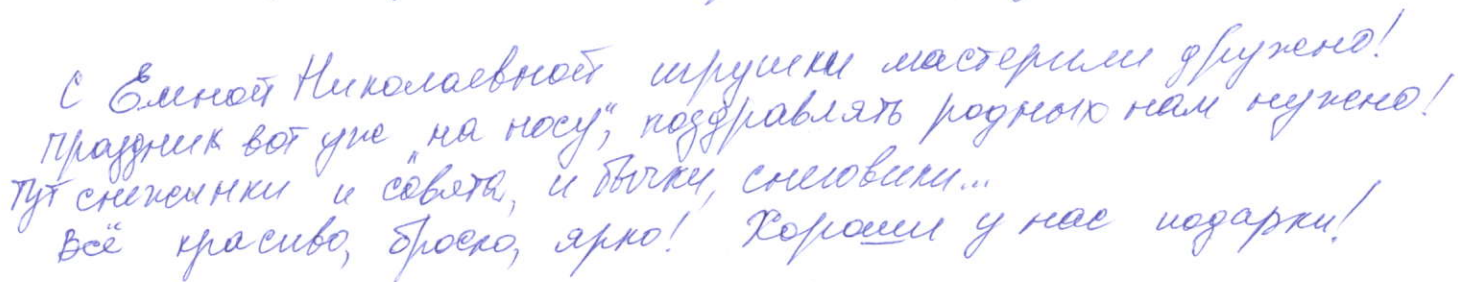 С Еленой Николаевной игрушки мастерили дружно!
Праздник вот уже "на носу", поздравлять родных нам нужно!
Тут снежинки и совята, и бычки, снеговики...
Всё красиво, броско, ярко! Хороши у нас подарки!